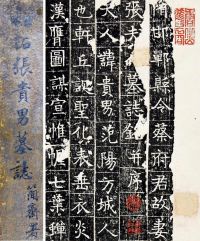 隋邯鄲縣令蔡府君故妻
張夫人墓誌銘并序
夫人諱貴男范陽方城人
也軒丘誕聖化表岳衣炎
漢膺圖謀宣帷帳七葉種
張貴男墓誌
簡齋署